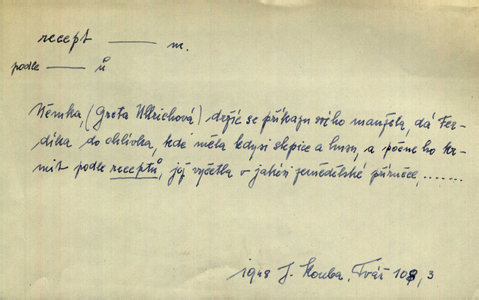 recept —— m.
podle —— ů
Němka, (Greta Ullrichová) držíc se příkazu svého manžela, dá Fer-
díka do chlívka, kde měla kdysi slepice a husy, a počne ho kr-
mit podle receptů, jež vyčetla v jakési zemědělské příručce, .......
1948 J. Kouba, Tvář 108, 3